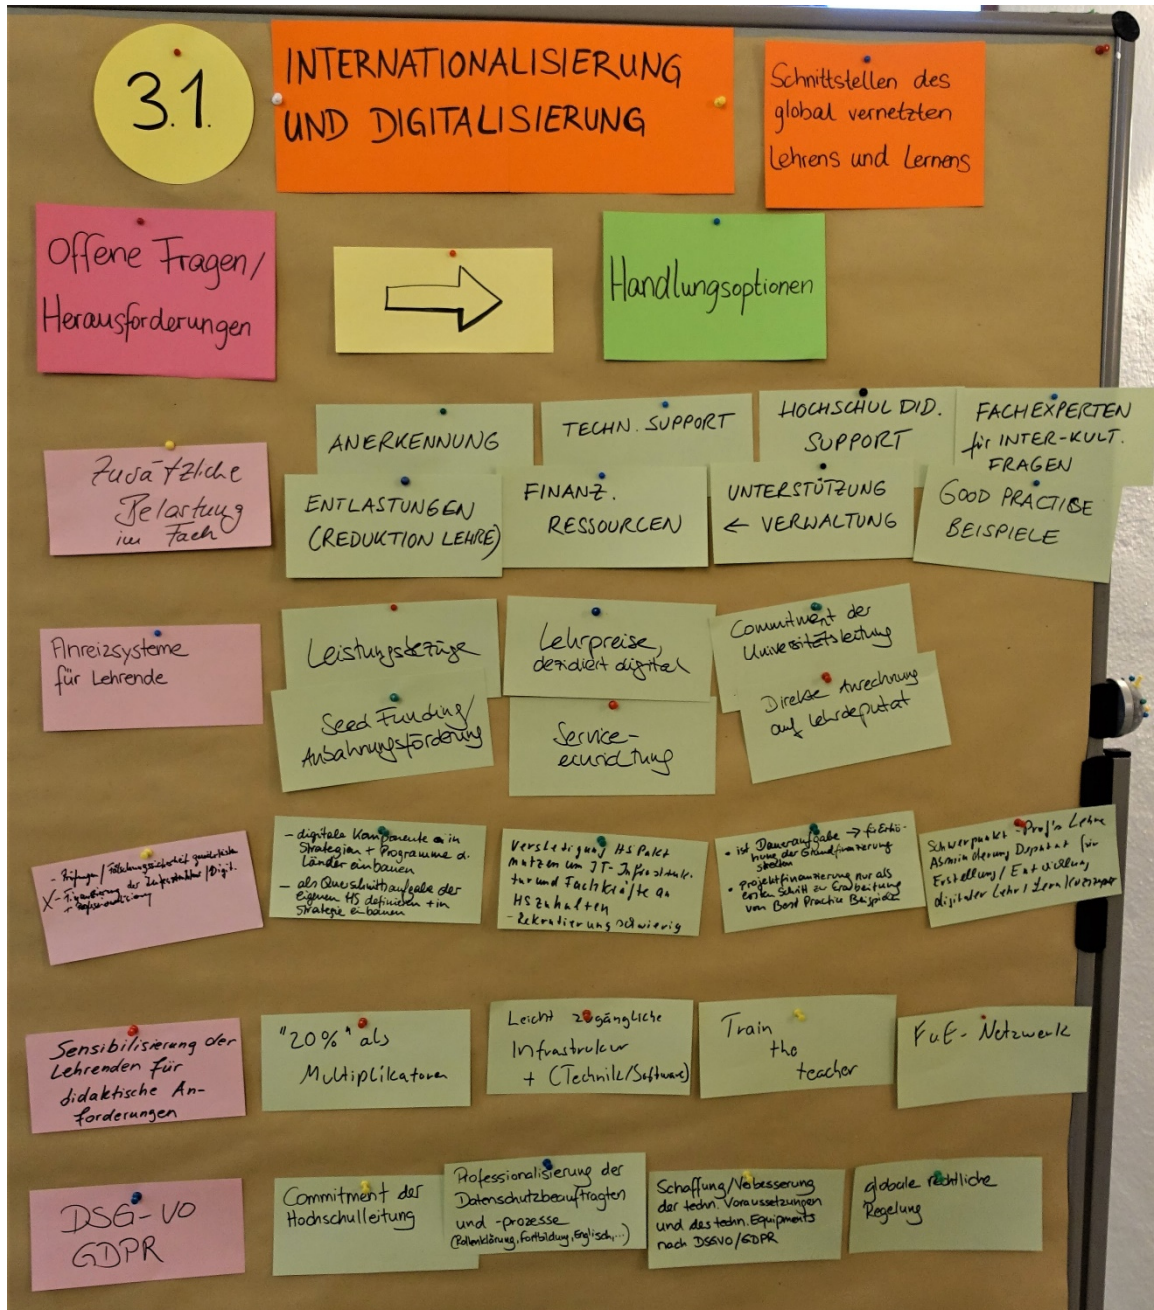 3.1.
INTERNATIONALISIERUNG
UND DIGITALISIERUNG
Schnittstellen des
global vernetzten
Lehrens und Lernens
Offene Fragen/
Herausforderungen
Handlungsoptionen
Zusätzliche
Belastung
im Fach
ANERKENNUNG
TECHN. SUPPORT
HOCHSCHUL DID.
SUPPORT
FACHEXPERTEN
für INTER-KULT.
FRAGEN
ENTLASTUNGEN
(REDUKTION LEHRE)
FINANZ.
RESSOURCEN
UNTERSTÜTZUNG
← VERWALTUNG
GOOD PRACTICE
BEISPIELE
Anreizsysteme
für Lehrende
Leistungsbezüge
Lehrpreise,
dezidiert digital
Commitment der
Universitätsleitung
Seed Funding/
Anbahnungsförderung
Service-
einrichtung
Direkte Anrechnung
auf Lehrdeputat
- Prüfungen /
- Finanzierung der /Digit.
- digitale Komponente in
Strategien + Programme d.
Länder einbauen
- als Querschnittsaufgabe der
eigenen HS definieren + in
Strategie einbauen
Verstetigung HS Pakt
nutzen um IT-Infrastruk-
tur und Fachkräfte an
HS zu halten
- Rekrutierung schwierig
• ist Daueraufgabe → für Erhö-
hung der Grundfinanzierung
• Projektfinanzierung nur als
erster Schritt zu Erarbeitung
von Best Practice Beispiele
Schwerpunkt-Prof's Lehre
Deputat für
Erstellung/Entwicklung
digitaler Lehr/Lernkonzepte
Sensibilisierung der
Lehrenden für
didaktische An-
forderungen
"20%" als
Multiplikatoren
Leicht zugängliche
Infrastruktur
+ (Technik/Software)
Train
the
teacher
FuE-Netzwerk
DSG-VO
GDPR
Commitment der
Hochschulleitung
Professionalisierung der
Datenschutzbeauftragten
und -prozesse
(Rollenklärung, Fortbildung, Englisch,...)
Schaffung/Verbesserung
der techn. Voraussetzungen
und des techn. Equipments
nach DSGVO/GDPR
globale rechtliche
Regelung